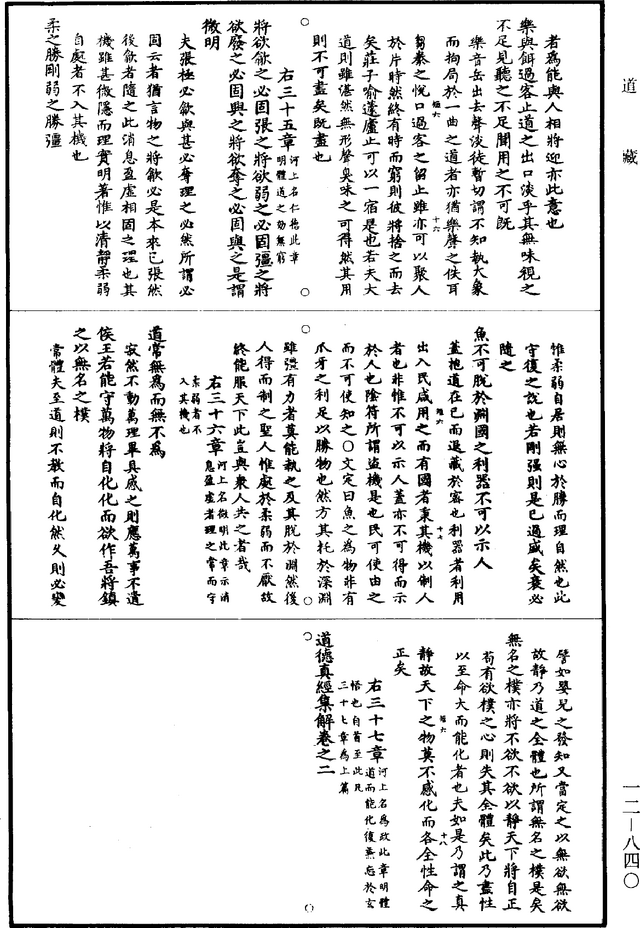 道藏
者為能與人相將迎亦此意也
樂與餌過客止道之出口淡乎其無味視之
不足見聽之不足聞用之不可既
樂音岳出去聲淡徒暫切謂不知執大象
而拘局於一曲之道者亦猶樂聲之佚耳
芻豢之悅口過客之留止雖亦可以聚人
於片時然終有時而窮則彼將捨之而去
矣莊子喻蘧廬止可以一宿是也若夫大
道則雖湛然無形聲臭味之可得然其用
則不可盡矣既盡也
右三十五章
河上名仁德此章
明體道之効無窮
將欲歙之必固張之將欲弱之必固彊之將
欲廢之必固興之將欲奪之必固與之是謂
微明
夫張極必歙與甚必奪理之必然所謂必
固云者猶言物之將歙必是本來已張然
後歙者隨之此消息盈虛相因之理也其
機雖甚微隱而理實明著惟以清靜柔弱
自處者不入其機也
柔之勝剛弱之勝彊
惟柔弱自居則無心於勝而理自然也此
守復之說也若剛强則是已過盛矣衰必
隨之
魚不可脫於淵國之利器不可以示人
蓋抱道在己而退藏於密也利器者利用
出入民咸用之而有國者秉其機以制人
者也非惟不可以示人蓋亦不可得而示
於人也陰符所謂盜機是也民可使由之
而不可使知之○文定曰魚之為物非有
爪牙之利足以勝物也然方其托於深淵
雖強有力者莫能執之及其脫於淵然後
人得而制之聖人惟處於柔弱而不厭故
終能服天下此豈與衆人共之者哉
右三十六章
河上名微明此章示消
息盈虛者理之常而守
柔弱者不
入其機也
道常無為而無不為
寂然不動萬理畢具感之則應萬事不遺
侯王若能守萬物將自化化而欲作吾將鎮
之以無名之樸
常體夫至道則不教而自化然久則必變
譬如嬰兒之發知又當定之以無欲無欲
故靜乃道之全體也所謂無名之樸是矣
無名之樸亦將不欲不欲以靜天下將自正
苟有欲樸之心則失其全體矣此乃盡性
以至命大而能化者也夫如是乃謂之真
靜故天下之物莫不感化而各全性命之
正矣
右三十七章
河上名為政此章明體
道而能化復無忘於玄
悟也自首至此凡
三十七章為上篇
道德真經集解卷之二
一二—八四〇